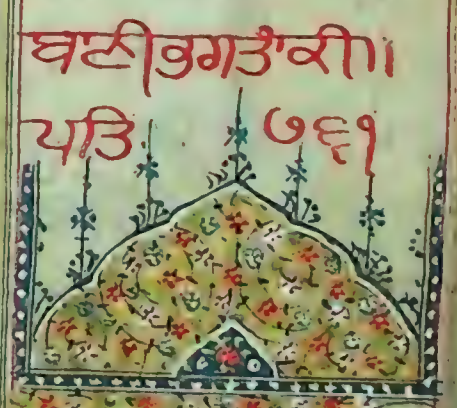 ਬਾਣੀਭਗਤਾਂਕੀ॥
ਪਤਿ ੭੬੧